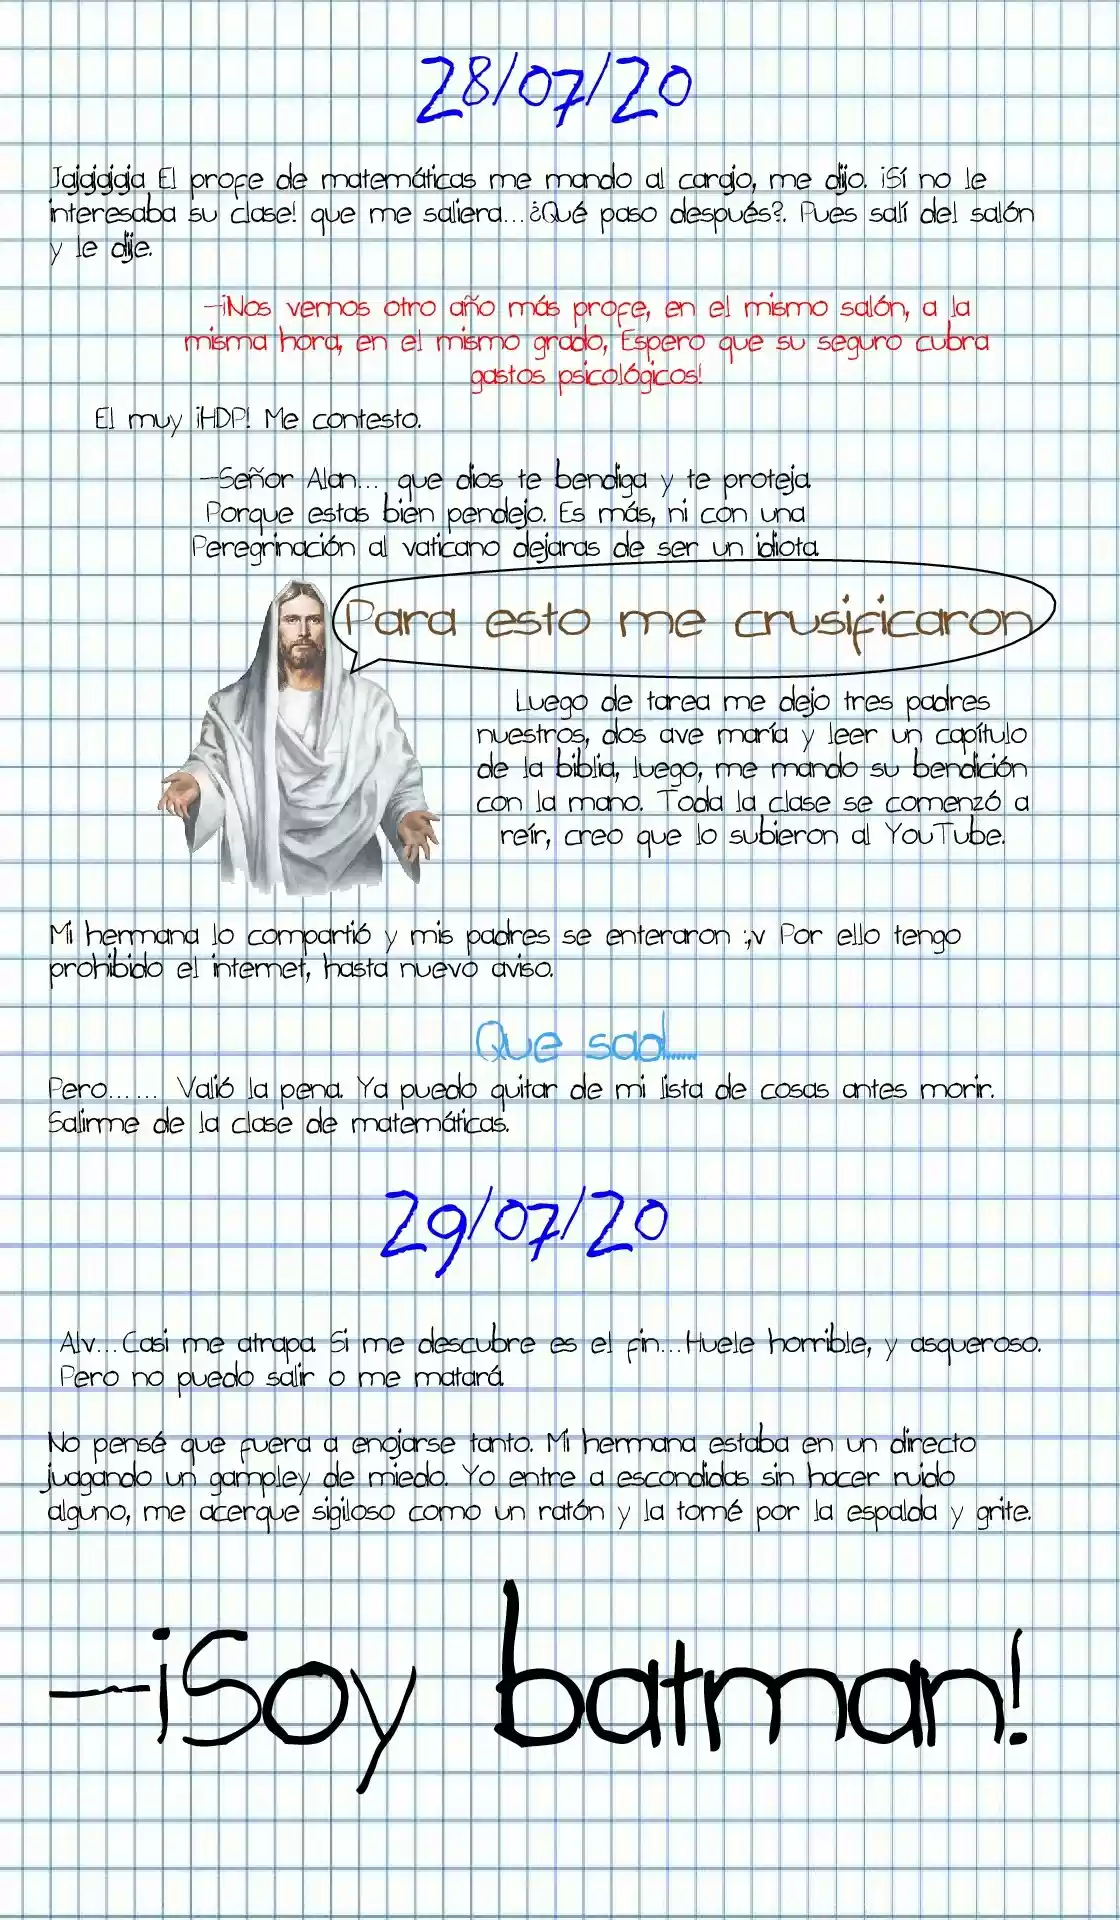 28/07/20
Jajajajaja El profe de matemáticas me mando al carajo, me dijo. ¡Sí no le
interesaba su clase! que me saliera...¿Qué paso después?. Pues salí del salón
y le dije.
—¡Nos vemos otro año más profe, en el mismo salón, a la
misma hora, en el mismo grado, Espero que su seguro cubra
gastos psicológicos!
El muy ¡HDP! Me contesto.
—Señor Alan... que dios te bendiga y te proteja
Porque estas bien pendejo. Es más, ni con una
Peregrinación al vaticano dejaras de ser un idiota
Para esto me crusificaron
Luego de tarea me dejo tres padres
nuestros, dos ave maría y leer un capítulo
de la biblia, luego, me mando su bendición
con la mano. Toda la clase se comenzó a
reír, creo que lo subieron al YouTube.
Mi hermana lo compartió y mis padres se enteraron :,v Por ello tengo
prohibido el internet, hasta nuevo aviso.
Que sad......
Pero...... Valió la pena. Ya puedo quitar de mi lista de cosas antes morir.
Salirme de la clase de matemáticas.
29/07/20
Alv...Casi me atrapa. Si me descubre es el fin...Huele horrible, y asqueroso.
Pero no puedo salir o me matará
No pensé que fuera a enojarse tanto. Mi hermana estaba en un directo
juagando un gampley de miedo. Yo entre a escondidas sin hacer ruido
alguno, me acerque sigiloso como un ratón y la tomé por la espalda y grite.
—¡Soy batman!